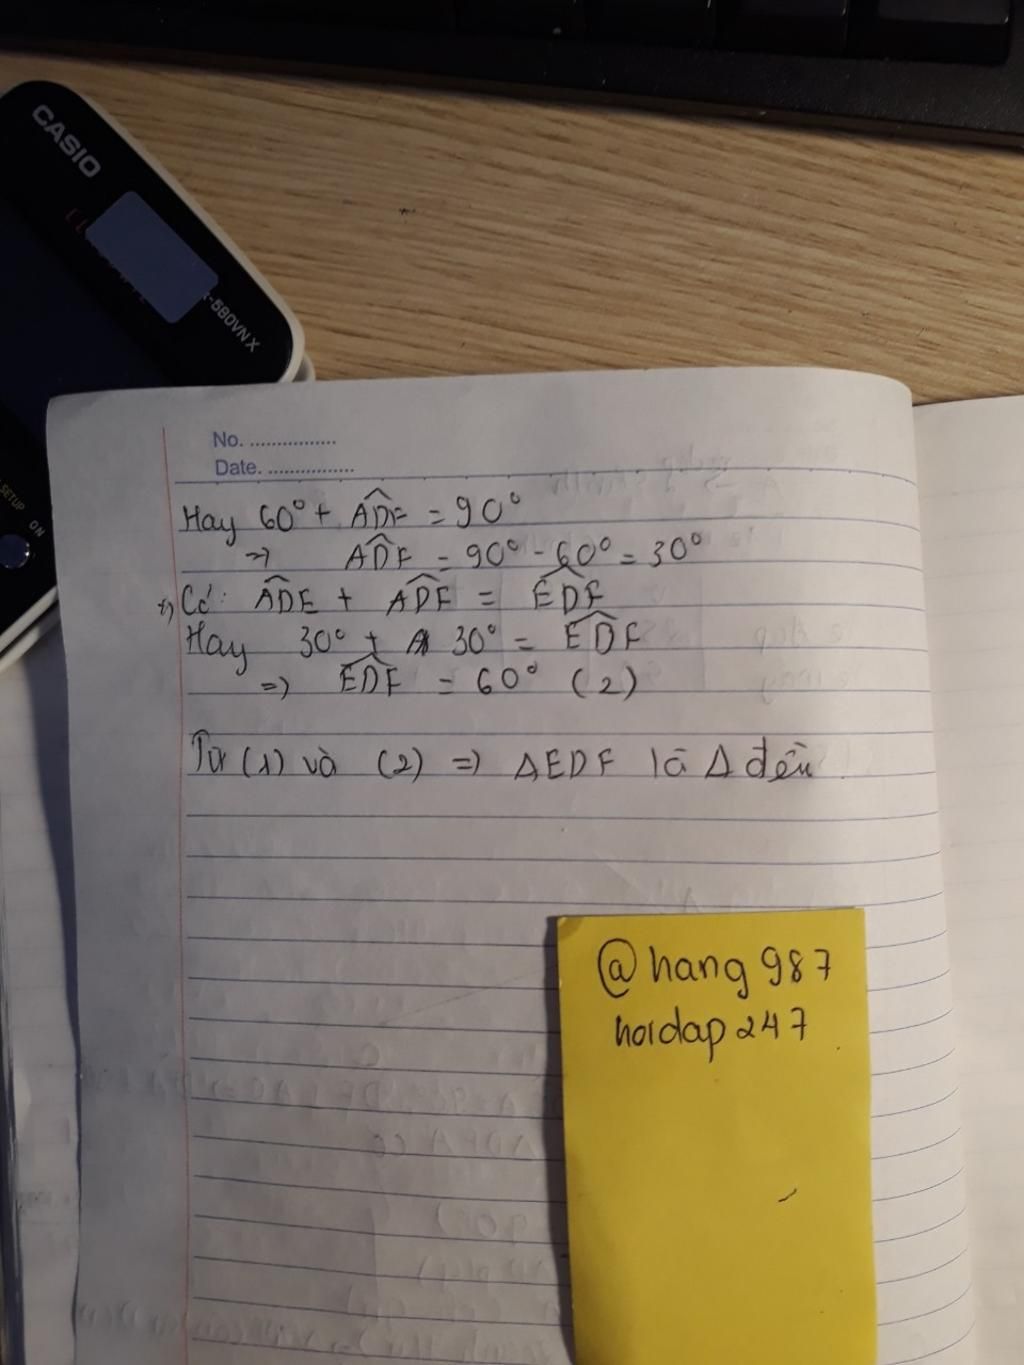 CASIO
-580VN X
SETUP
ON
No. ................
Date. ................
Hay 60° + ADF = 90°
=> ADF = 90° - 60° = 30°
Có: ADE + ADF = EDF
Hay 30° + 30° = EDF
=> EDF = 60° (2)
Từ (1) và (2) => ΔEDF là Δ đều
@hang987
hoidap247